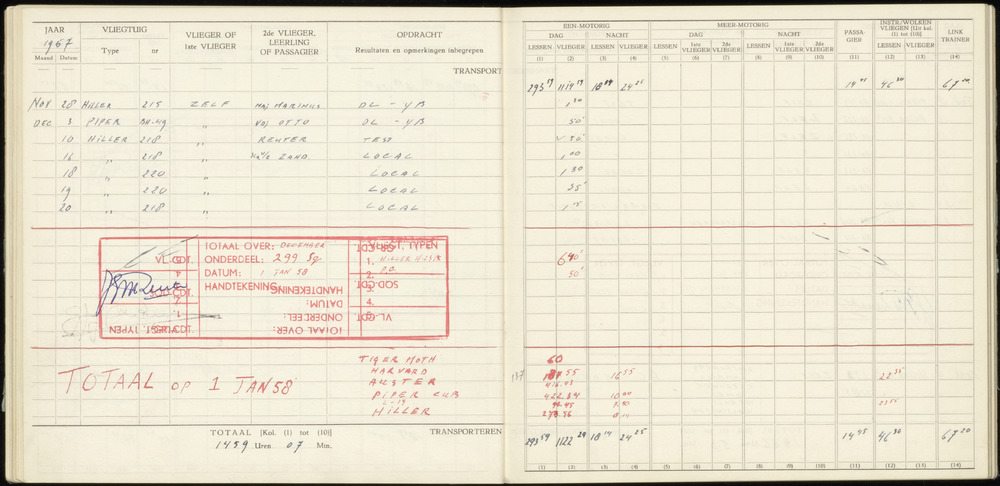 JAAR
1957
Maand Datum
VLIEGTUIG
Type nr
VLIEGER OF
1ste VLIEGER
2de VLIEGER,
LEERLING
OF PASSAGIER
OPDRACHT
Resultaten en opmerkingen inbegrepen
TRANSPORT
NOV 28 HILLER 215 ZELF MAJ MARINUS DL - YB
DEC 3 PIPER " VDJ OTTO DL - YB
10 HILLER 218 " REUTER TEST
16 " 218 " ZAND LOCAL
18 " 220 " LOCAL
19 " 220 " LOCAL
20 " 218 " LOCAL
TOTAAL OVER: DECEMBER
ONDERDEEL: 299 Sq
DATUM: 1 JAN 58
HANDTEKENING
VL.GDT.
SOD.GDT.
VLIEGT. TYPEN
1. HILLER H-23/B
2. P.C.
3.
4.
TOTAAL OVER:
ONDERDEEL:
DATUM:
HANDTEKENING
VL.GDT.
SOD.GDT.
VLIEGT. TYPEN
TOTAAL OP 1 JAN 58
TIGER MOTH
HARVARD
AUSTER
PIPER CUB
L-19
HILLER
TOTAAL [Kol. (1) tot (10)]
1459 Uren 07 Min.
TRANSPORTEREN
EEN-MOTORIG
DAG NACHT
LESSEN VLIEGER LESSEN VLIEGER
(1) (2) (3) (4)
MEER-MOTORIG
DAG NACHT
LESSEN 1ste VLIEGER 2de VLIEGER LESSEN 1ste VLIEGER 2de VLIEGER
(5) (6) (7) (8) (9) (10)
PASSA-
GIER
(11)
INSTR./WOLKEN
VLIEGEN [Uit kol.
(1) tot (10)]
LESSEN VLIEGER
(12) (13)
LINK
TRAINER
(14)
293 59 1114 59 18 14 24 25 14 45 46 30 67 20
1 30
50'
1 00
1 30
55'
6 40
50'
60
137 55 16 55 22 55
416.03
422.84 10 00
94.45 23 55
278.56
293 59 1122 29 18 14 24 25 14 45 46 30 67 20
(1) (2) (3) (4) (5) (6) (7) (8) (9) (10) (11) (12) (13) (14)